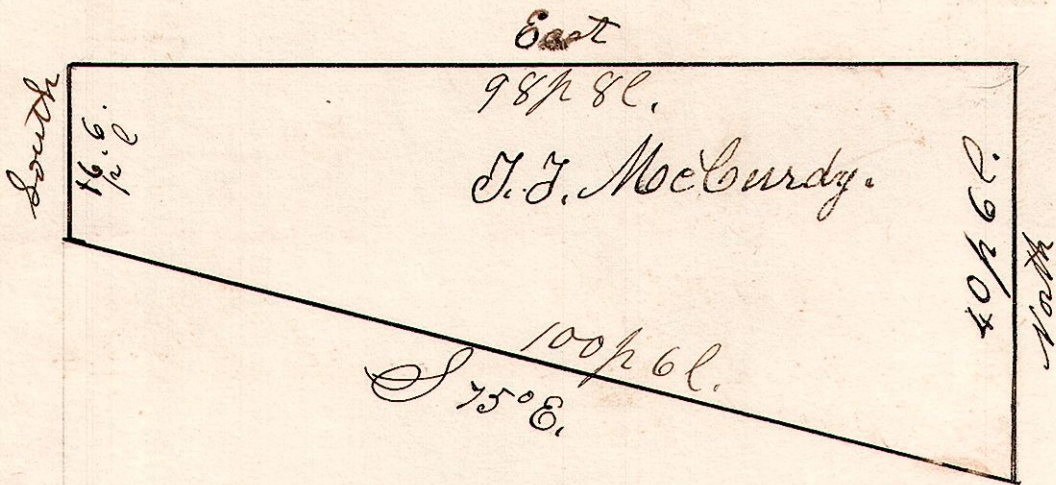 East
98p 8l.
South
16. 6.
p l
J. J. McCurdy.
40p 6l.
North
100p 6l.
S 75° E.